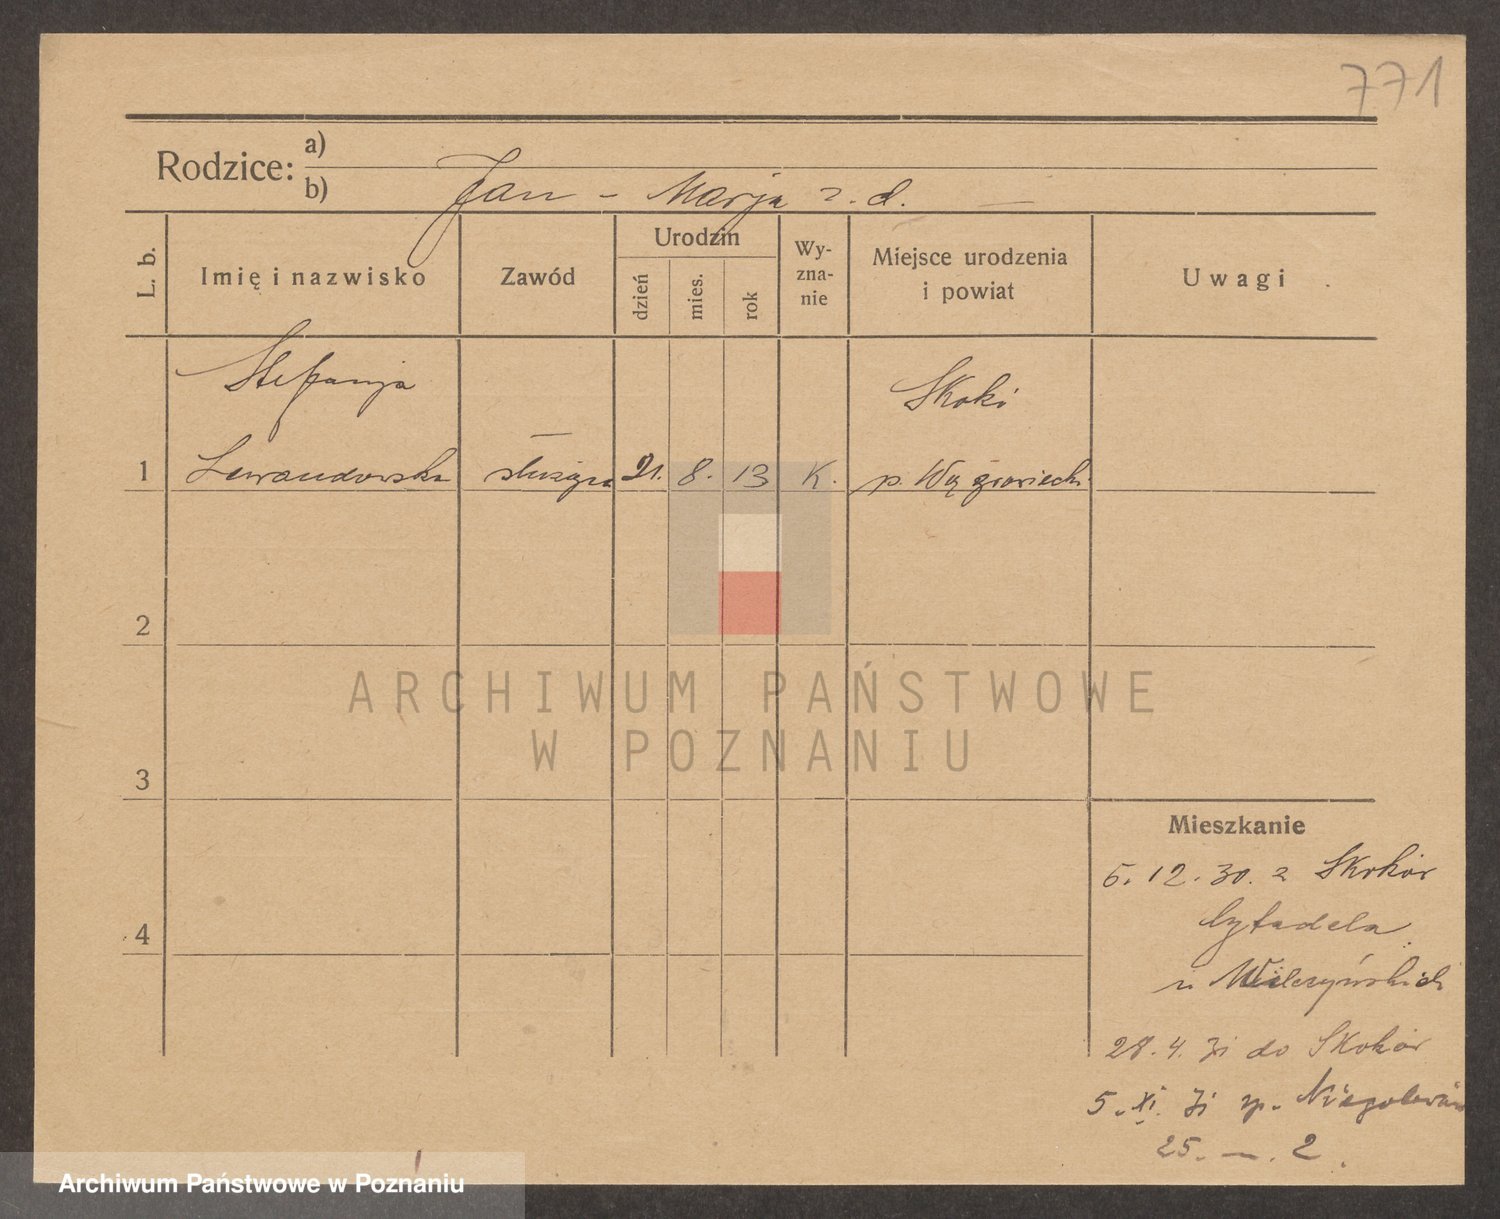 771
Rodzice:
a)
b) Jan - Marja z. d. —
L. b.
Imię i nazwisko
Zawód
Urodzin
dzień
mies.
rok
Wy-
zna-
nie
Miejsce urodzenia
i powiat
Uwagi
Stefanja
Skoki
1
Lewandowska
służąca
21.
8.
13
K.
p. Wągrowiecki
2
ARCHIWUM PAŃSTWOWE
W POZNANIU
3
Mieszkanie
5. 12. 30. z Skoków
Cytadela
u Wilczyńskich
4
28. 4. 31 do Skoków
5. XI. 31 Niegolewskich
25. — . 2.
Archiwum Państwowe w Poznaniu